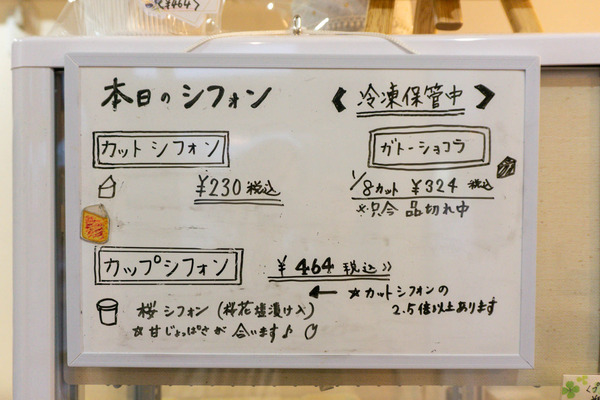 ¥464
本日のシフォン
< 冷凍保管中 >
カットシフォン
ガトーショコラ
¥230 税込
1/8カット ¥324 税込
※只今 品切れ中
カップシフォン
¥464 税込 》
← ☆カットシフォンの
2.5倍以上あります
桜シフォン (桜花塩漬け入)
☆甘じょっぱさが 合います♪